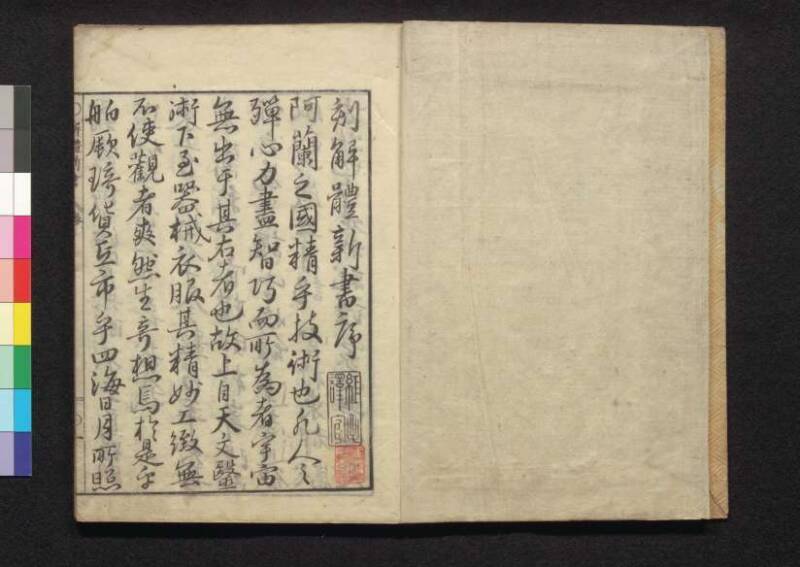 刻解體新書序
阿蘭之國精乎技術也凡人之
殫心力盡智巧而所為者宇宙
無出于其右者也故上自天文醫
術下至器械衣服其精妙工緻無
不使觀者爽然生奇想焉於是乎
舶厥琦貨互市乎四海日月所照